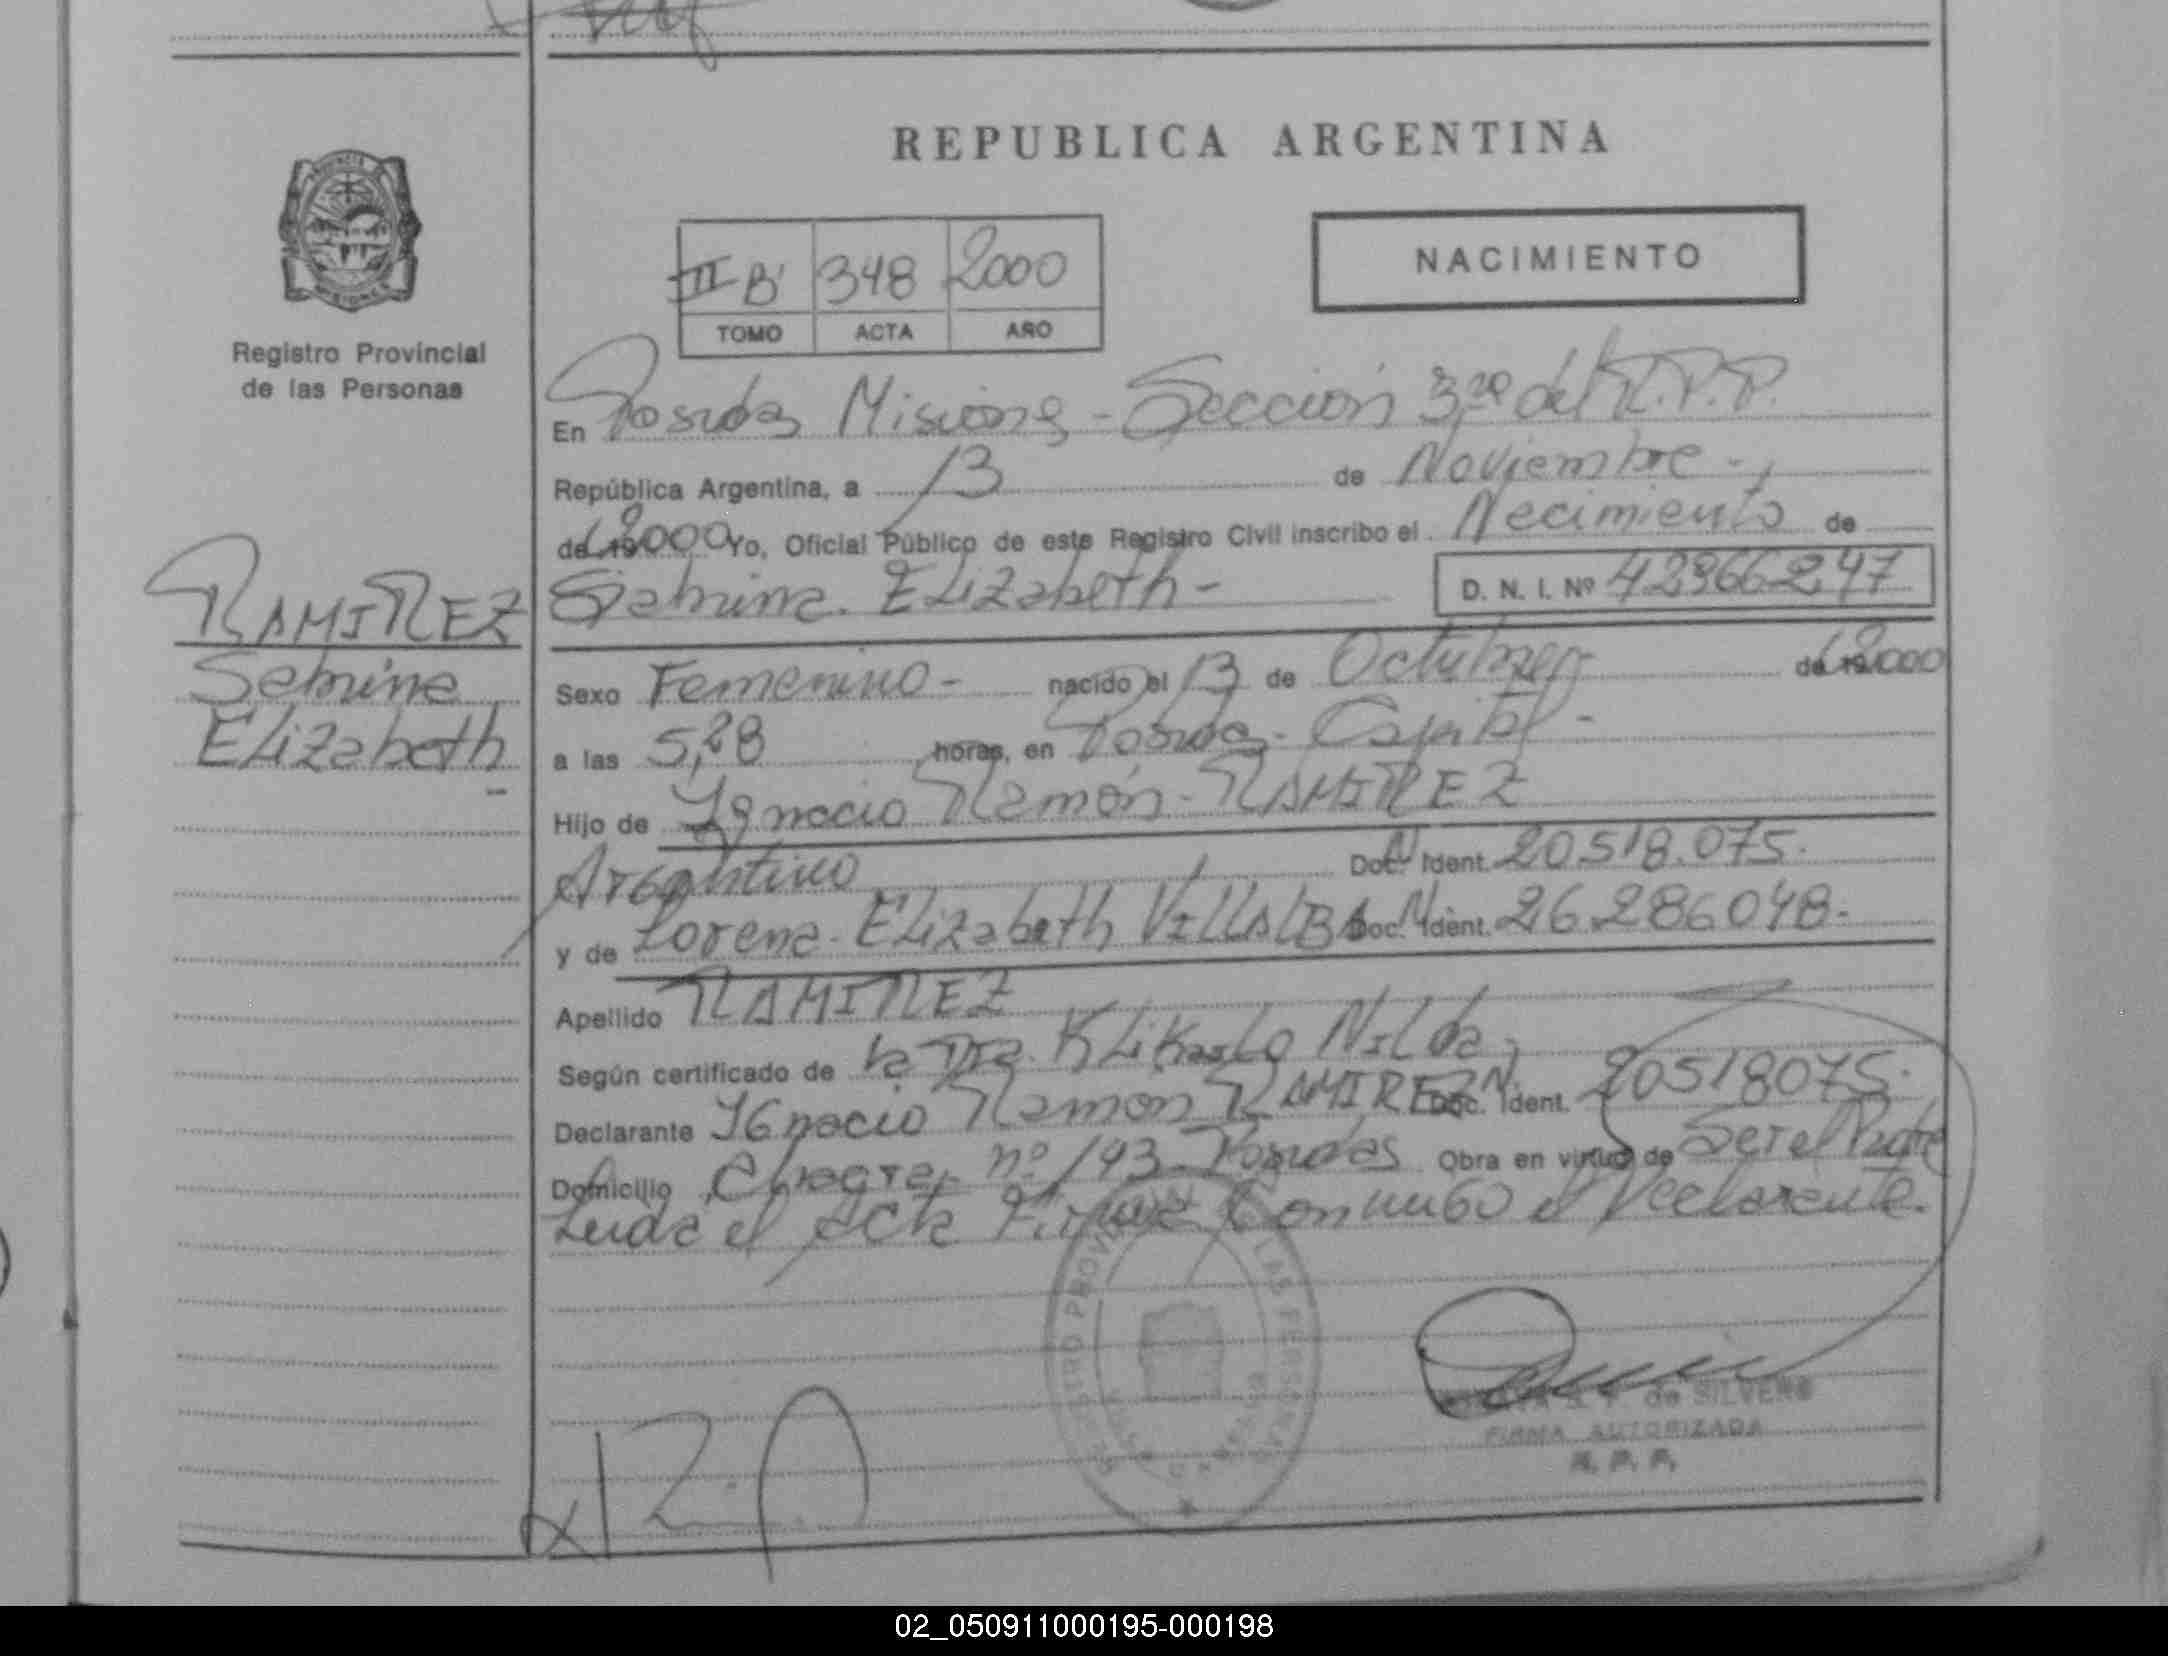 REPUBLICA ARGENTINA
NACIMIENTO
III B 348 2000
TOMO ACTA AÑO
Registro Provincial
de las Personas
En Posadas Misiones - Sección 3ra del R.P.P.
República Argentina, a 13 de Noviembre -
de 19 2000 Yo, Oficial Público de este Registro Civil inscribo el Nacimiento de
Sabrina Elizabeth - D. N. I. Nº 42966247
RAMIREZ
Sabrina
Elizabeth
Sexo Femenino - nacido el 13 de Octubre de 19 2000
a las 5,28 horas, en Posadas - Capital -
Hijo de Ignacio Ramón - RAMIREZ
Argentino Doc. Ident. 20.518.075.
y de Lorena Elizabeth VILLALBA Doc. Ident. 26.286048-
Apellido RAMIREZ
Según certificado de la Dra. Nilda
Declarante IGnacio Ramón RAMIREZ Doc. Ident. 20518075.
Domicilio Chacra nº 193 Posadas Obra en virtud de Ser el Padre
Leida el acta Firma Conmigo el Declarante.
REGISTRO PROVINCIAL DE LAS PERSONAS
de SILVERO
FIRMA AUTORIZADA
R. P. P.
02_050911000195-000198